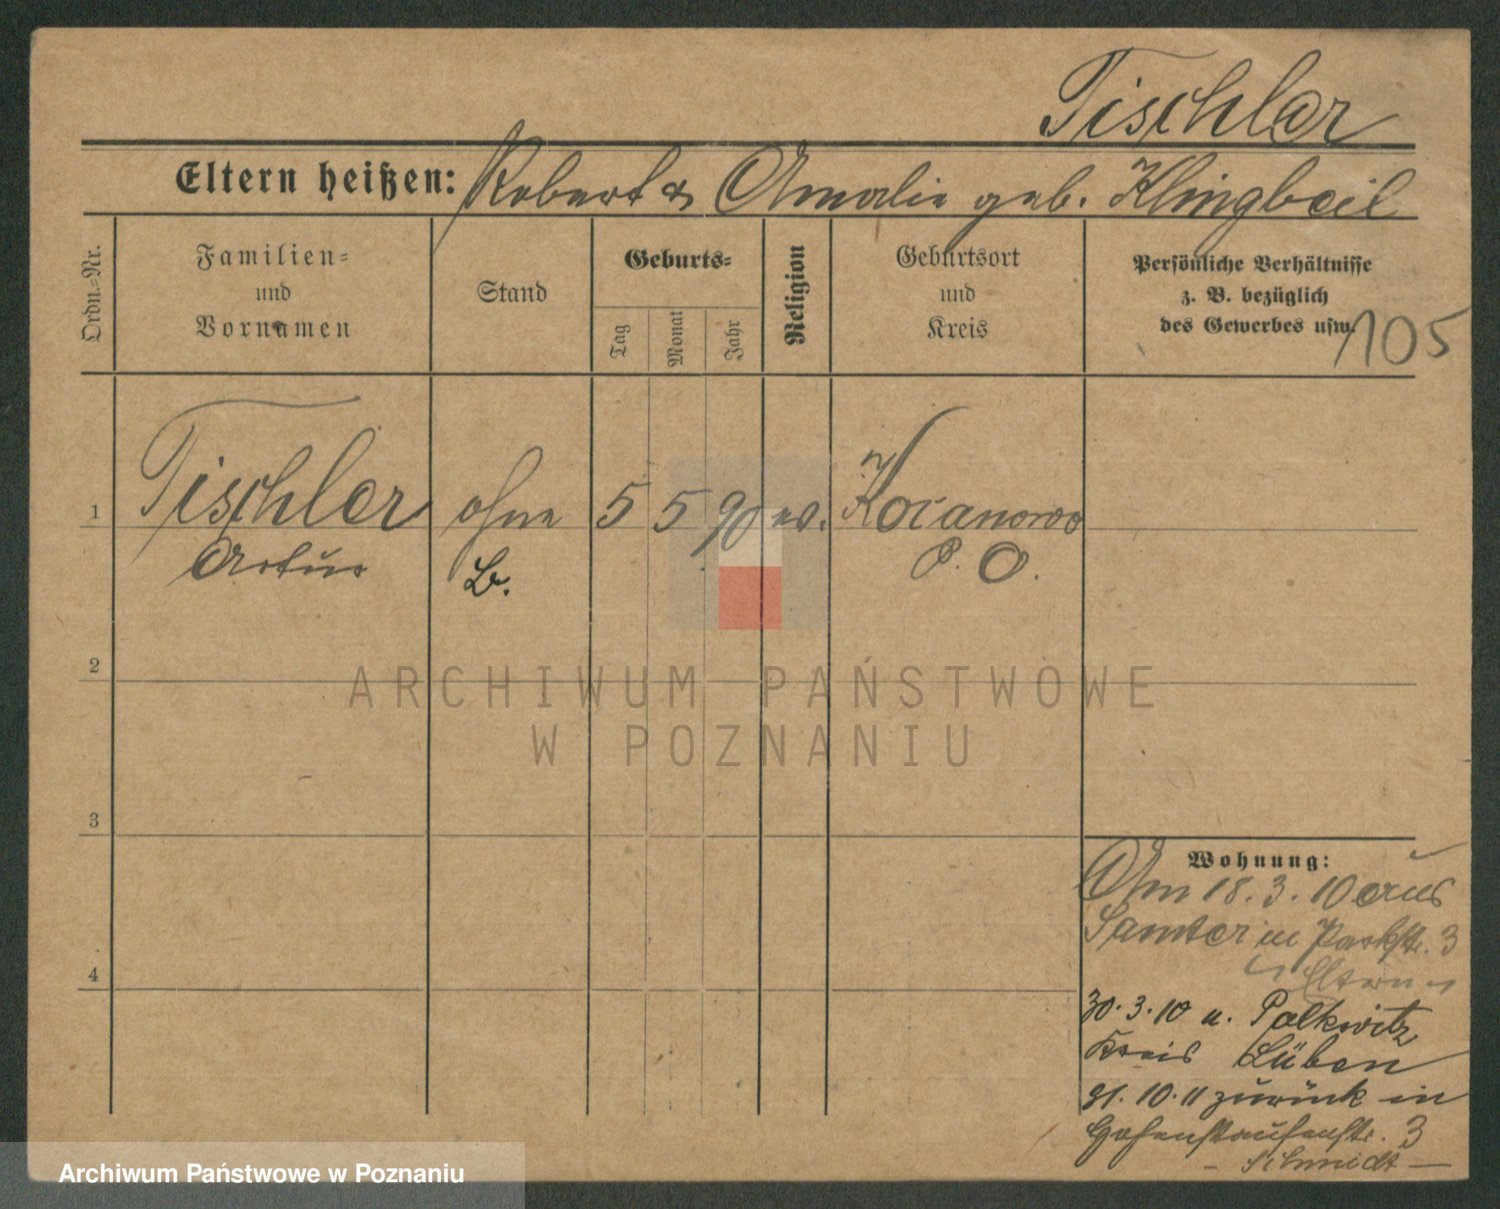 Tischler
Eltern heißen: Robert & Amalie geb. Klingbeil
Ordn.-Nr.
Familien=
und
Vornamen
Stand
Geburts=
Tag
Monat
Jahr
Religion
Geburtsort
und
Kreis
Persönliche Verhältnisse
z. B. bezüglich
des Gewerbes usw.
105
1 Tischler ohne 5 5 90 ev. Kocanowo
Artur P. O.
2
ARCHIWUM PAŃSTWOWE
W POZNANIU
3
4
Wohnung:
Am 18.3.10 aus
Samter in Parkstr. 3
Eltern
30.3.10 n. Polkwitz
Kreis Lüben
31.10.11 zurück in
Hohenstaufenstr. 3
- Schmidt -
Archiwum Państwowe w Poznaniu